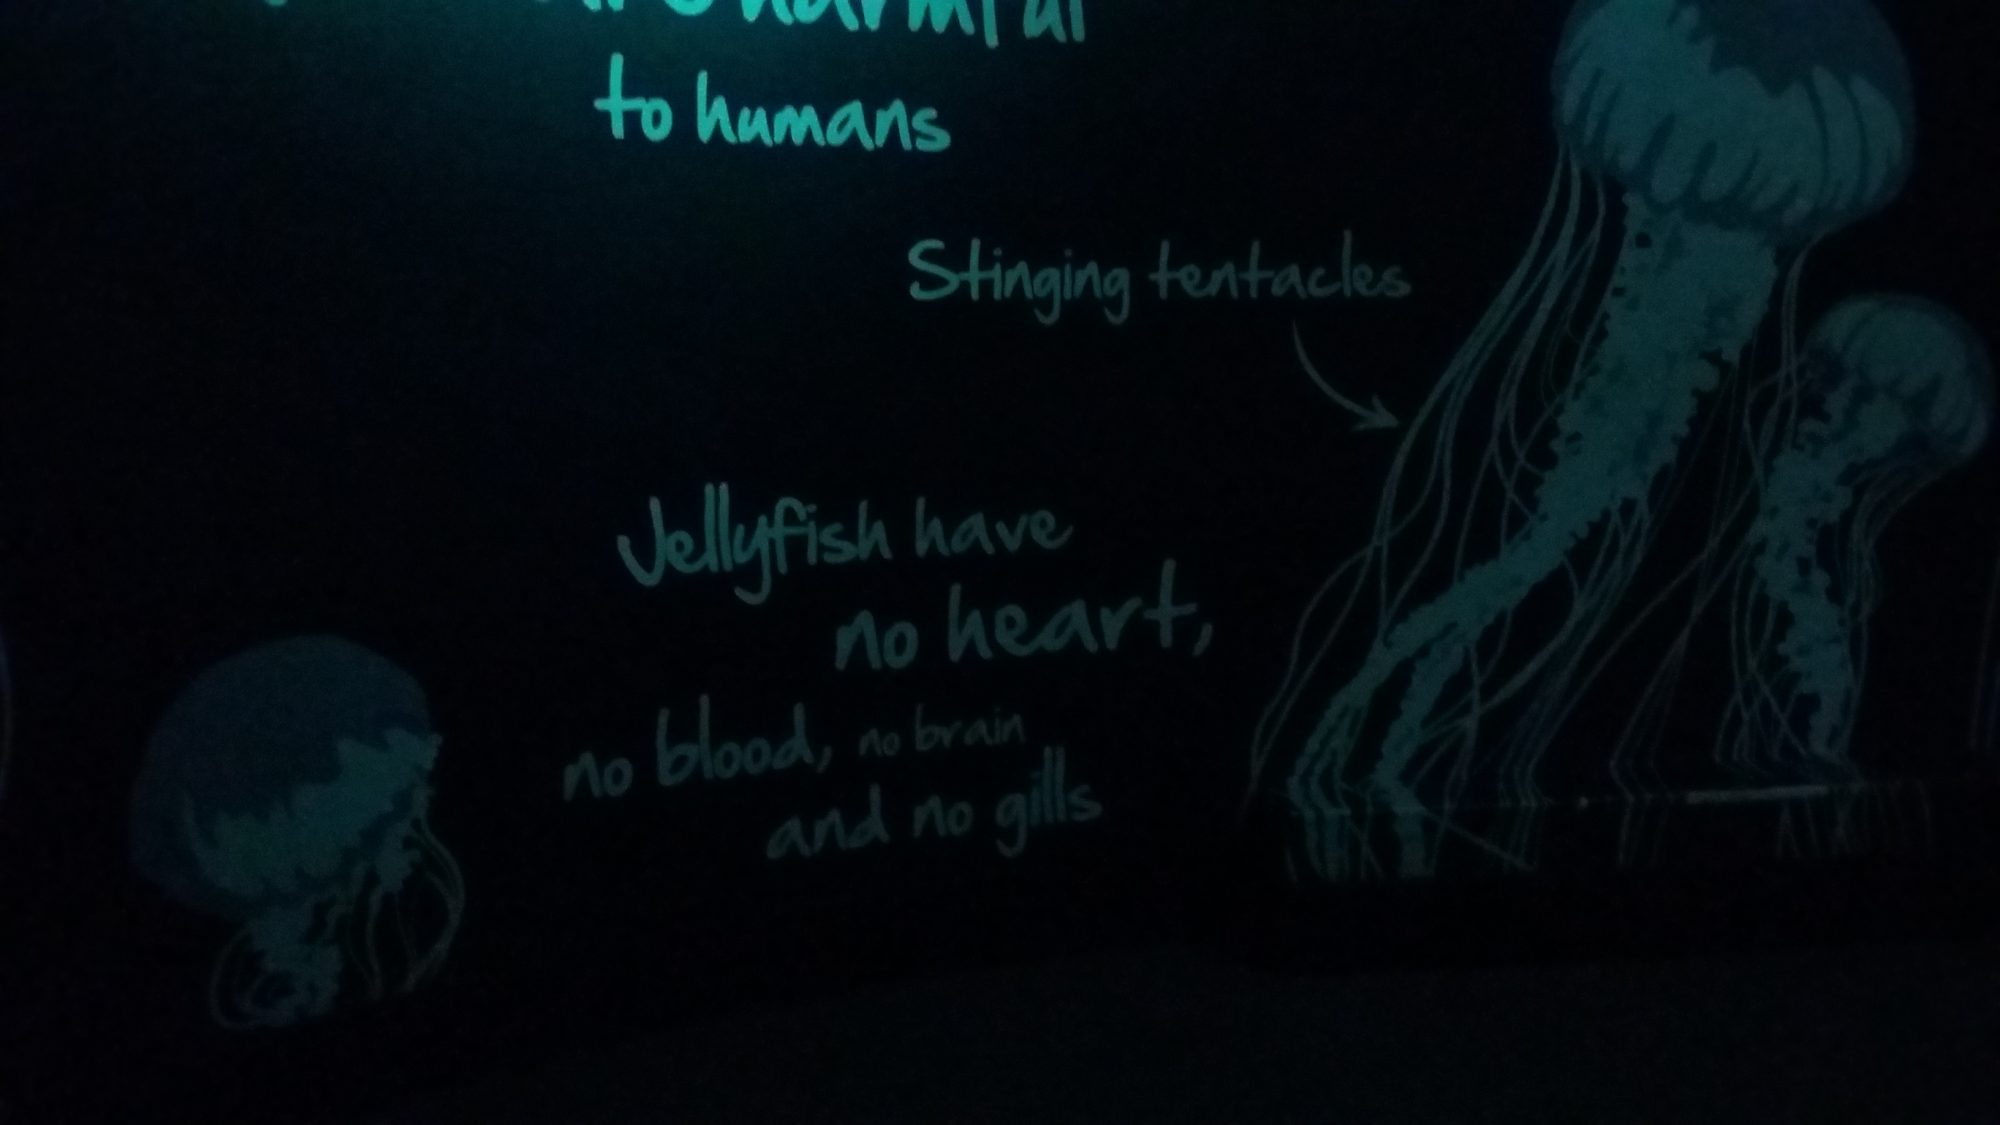 harmful
to humans
Stinging tentacles
Jellyfish have
no heart,
no blood, no brain
and no gills